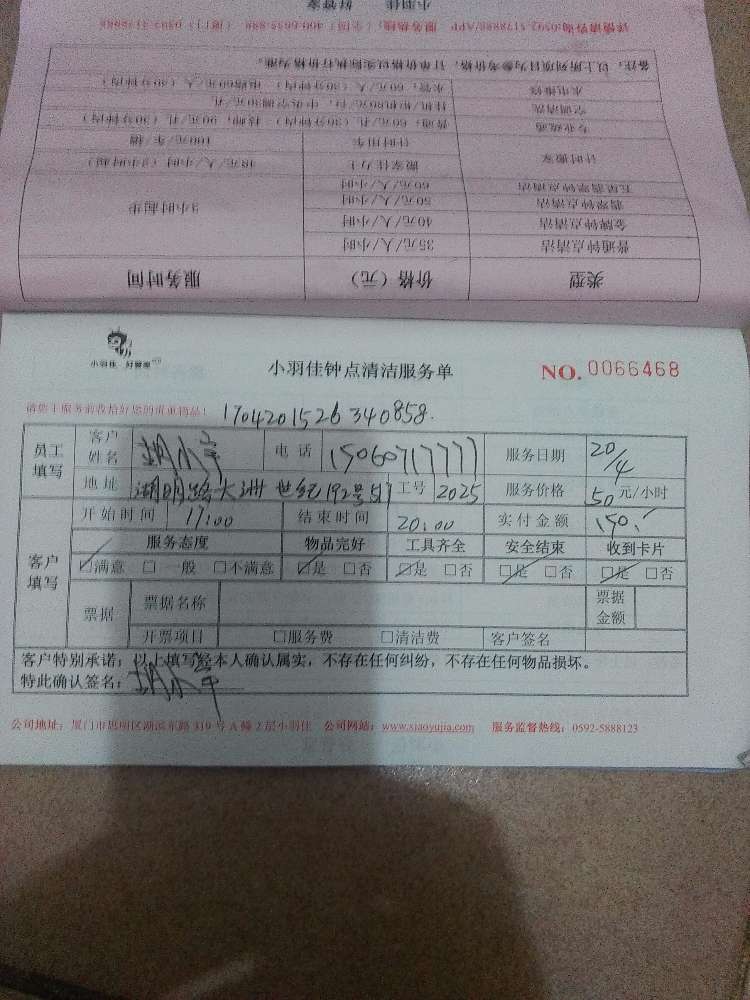 小羽佳 好管家
详情请咨询
服务热线：400-6635-888（全国）（厦门）
备注：以上所列项目为参考价格，订单价格以实际执行价格为准。
水电维修 水管：60元/人（30分钟内） 电路60元/人（30分钟内）
空调清洗
专业疏通
计时搬家 计时用车 100元/车/趟
搬家佳力士 48元/人/小时（2小时起）
五星翡翠钟点清洁 60元/人/小时
翡翠钟点清洁 50元/人/小时
金牌钟点清洁 40元/人/小时 3小时起步
普通钟点清洁 35元/人/小时
类型 价格（元） 服务时间
小羽佳 好管家
小羽佳钟点清洁服务单 NO. 0066468
请您于服务前收拾好您的贵重物品！ 1704201526340858
员工填写 客户姓名 电话 15060717777 服务日期 20/4
地址 湖明路大洲世纪192号517 工号 2025 服务价格 50 元/小时
客户填写 开始时间 17:00 结束时间 20:00 实付金额 150.
服务态度 物品完好 工具齐全 安全结束 收到卡片
☑满意 □ 一般 □不满意 ☑是 □否 ☑是 □否 ☑是 □否 ☑是 □否
票据 票据名称 票据金额
开票项目 □服务费 □清洁费 客户签名
客户特别承诺：以上填写经本人确认属实，不存在任何纠纷，不存在任何物品损坏。
特此确认签名：
公司地址：厦门市思明区湖滨东路319号A幢2层小羽佳 公司网站：www.xiaoyujia.com 服务监督热线：0592-5888123